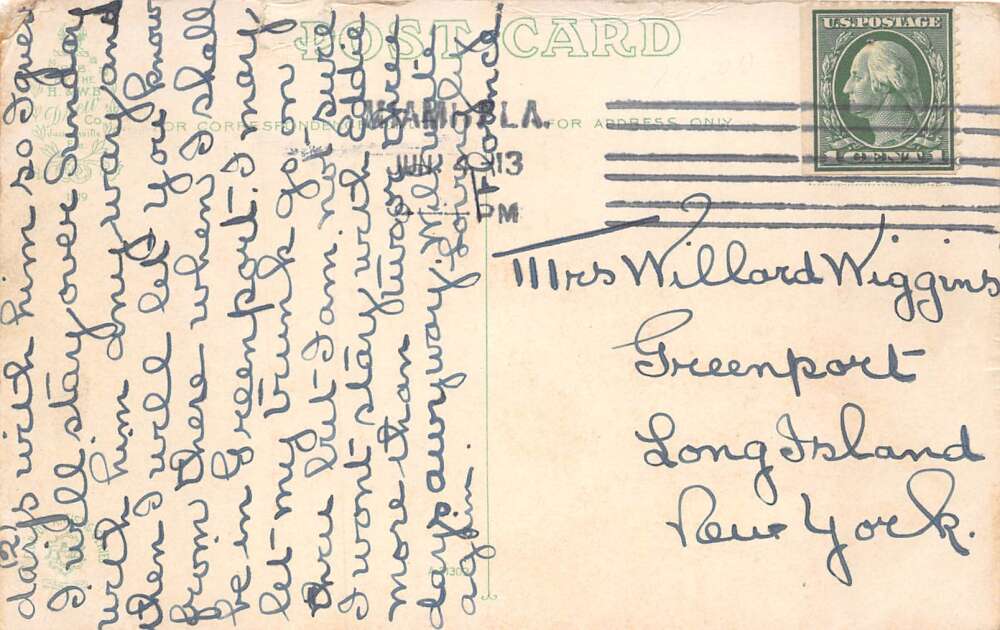 POST CARD
U.S. POSTAGE
1 CENT 1
MIAMI FLA.
JUN 13
PM
FOR CORRESPONDENCE
FOR ADDRESS ONLY
THE
H. & W.B.
Drew
Co.
Jacksonville
(2)
days with him so I guess
I will stay over Sunday
with him any way and
then I will let you know
from there when I shall
be in Greenport. I may
let my trunk go on
thru but I am not sure
I wont stay with Addie
more than two or three
days anyway. Will write
again. Lovingly
Florence
Mrs Willard Wiggins
Greenport
Long Island
New York.